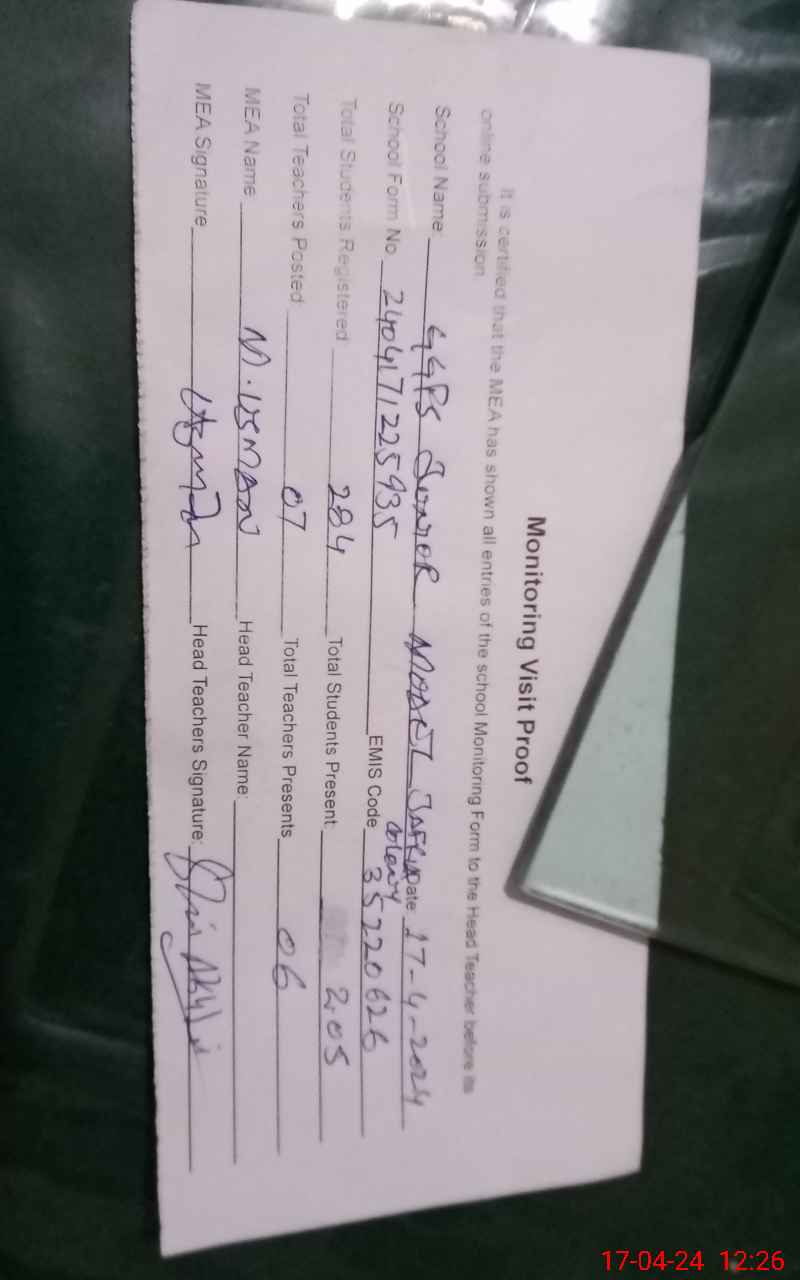 Monitoring Visit Proof
It is certified that the MEA has shown all entries of the school Monitoring Form to the Head Teacher before its
online submission.
School Name: GGPS JUNIOR MODEL JAFRIA Colony Date 17-4-2024
School Form No 2404171225935 EMIS Code 35220626
Total Students Registered: 284 Total Students Present: 205
Total Teachers Posted: 07 Total Teachers Presents 06
MEA Name M. USMAN Head Teacher Name:
MEA Signature Usman Head Teachers Signature:
17-04-24 12:26